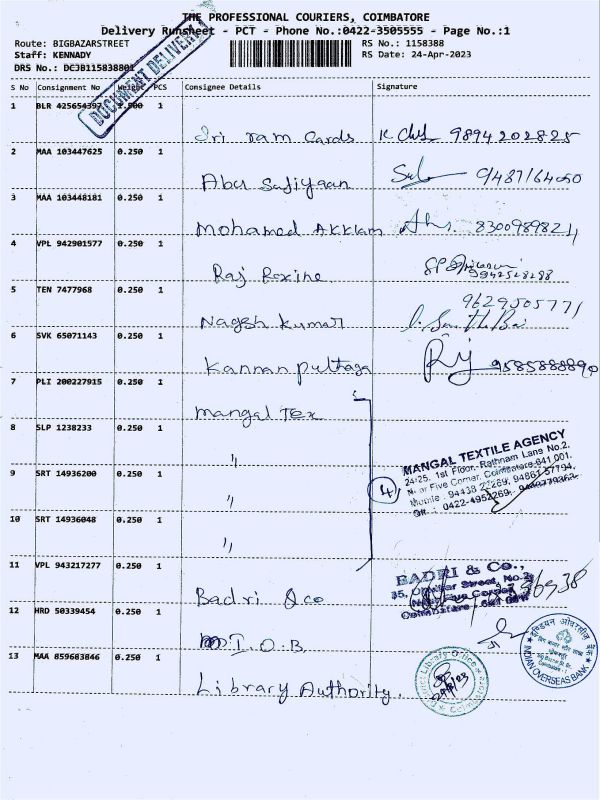 THE PROFESSIONAL COURIERS, COIMBATORE
Delivery Runsheet - PCT - Phone No.:0422-3505555 - Page No.:1
Route: BIGBAZARSTREET
RS No.: 1158388
Staff: KENNADY
RS Date: 24-Apr-2023
DRS No.: DCJB115838801
DOCUMENT DELIVERY
S No Consignment No Weight PCS Consignee Details Signature
1 BLR 425654397 1.500 1
Sri ram Cards 9894202825
2 MAA 103447625 0.250 1
Abu Sufiyaan
3 MAA 103448181 0.250 1
Mohamed Akklam 8300989821
4 VPL 942901577 0.250 1
Raj Roxine
5 TEN 7477968 0.250 1
9629505771
Nagesh kumar
6 SVK 65071143 0.250 1
Kannan puthaga 9585888890
7 PLI 200227915 0.250 1
Mangal Tex
8 SLP 1238233 0.250 1
"
MANGAL TEXTILE AGENCY
24-25, 1st Floor, Rathnam Lane No.2,
Near Five Corner, Coimbatore-641 001.
9 SRT 14936200 0.250 1
"
4
10 SRT 14936048 0.250 1
"
11 VPL 943217277 0.250 1
BADRI & Co.,
Badri & co
12 HRD 50339454 0.250 1
I.O.B.
INDIAN OVERSEAS BANK
13 MAA 859683846 0.250 1
Library Authority.